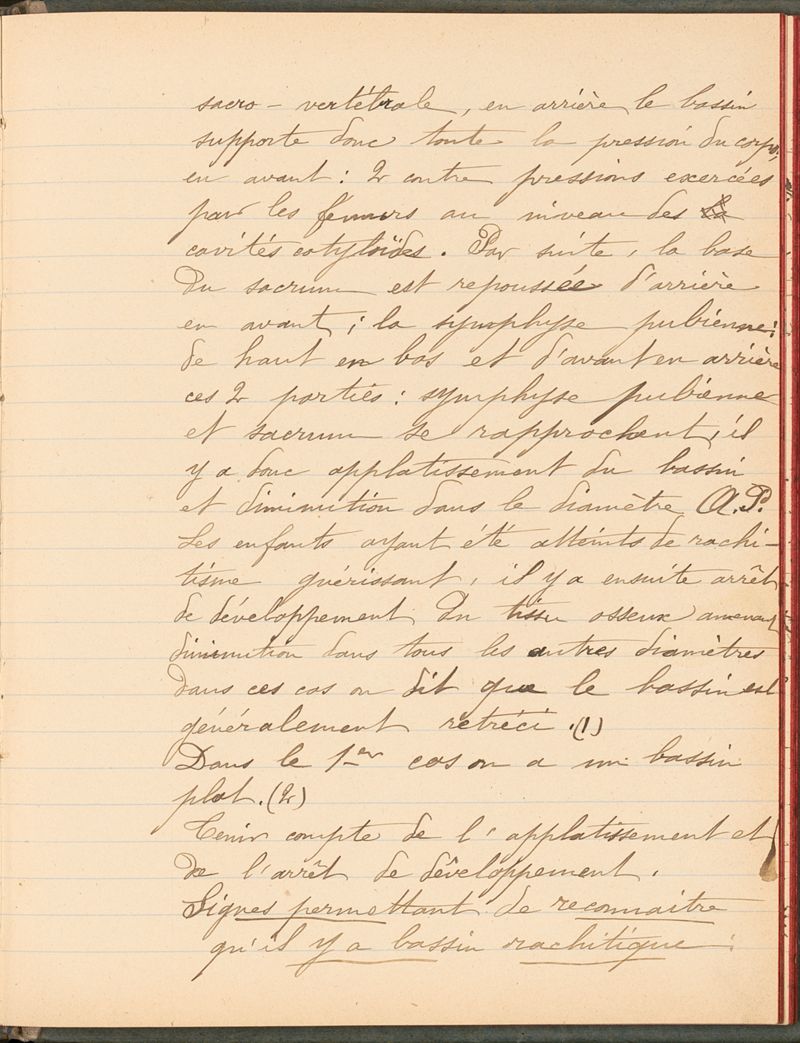 sacro - vertébrale, en arrière, le bassin
supporte donc toute la pression du corps,
en avant : 2 contre pressions exercées
par les fémurs au niveau des la
cavités cotyloïdes. Par suite, la base
du sacrum est repoussée d'arrière
en avant ; la symphyse pubienne :
de haut en bas et d'avant en arrière
ces 2 parties : symphyse pubienne
et sacrum se rapprochent, il
y a donc applatissement du bassin
et diminution dans le diamètre A.P.
Les enfants ayant été atteints de rachi-
tisme guérissant, il y a ensuite arrêt
de développement du tissu osseux amenant
diminution dans tous les autres diamètres
dans ces cas on dit que le bassin est
généralement retréci. (1)
Dans le 1er cas on a un bassin
plat. (2)
Tenir compte de l'applatissement et
de l'arrêt de développement.
Signes permettant de reconnaitre
qu'il y a bassin rachitique :